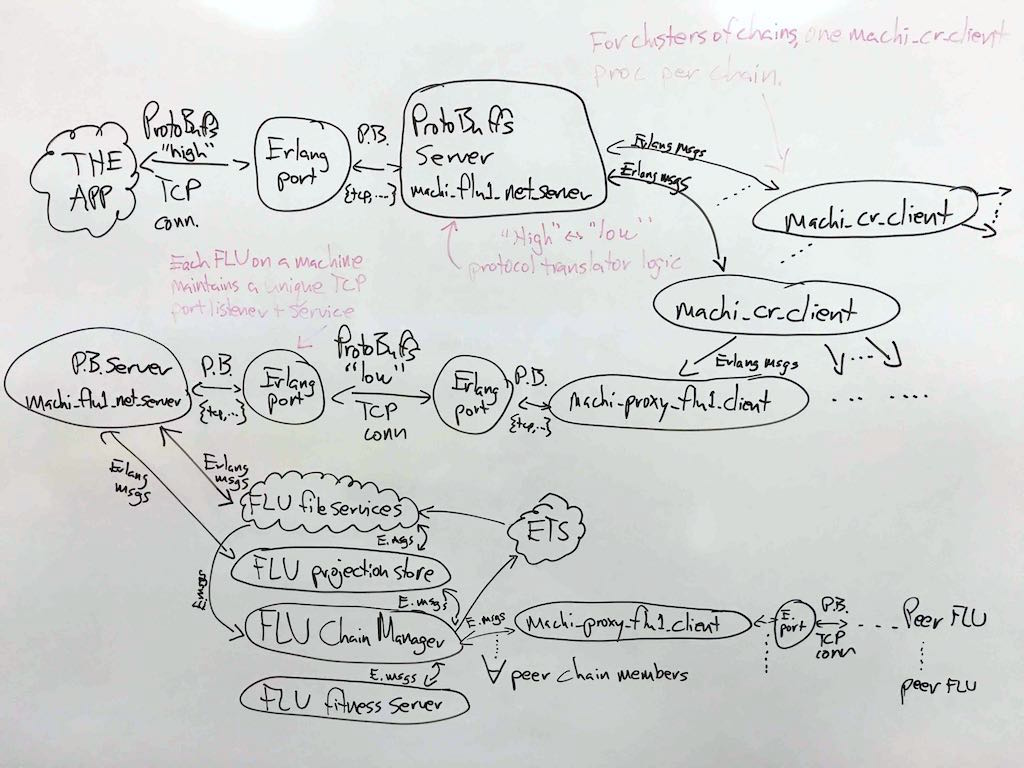 For clusters of chains, one machi_cr_client
proc per chain.
THE
APP
ProtoBuffs
"high"
TCP
conn.
Erlang
port
P.B.
{tcp,...}
ProtoBuffs
Server
machi_flu1_net_server
Erlang msgs
Erlang msgs
machi_cr_client
"High" ↔ "low"
protocol translator logic
Each FLU on a machine
maintains a unique TCP
port listener + service
machi_cr_client
Erlang msgs
P.B. Server
machi_flu1_net_server
P.B.
{tcp,...}
Erlang
port
ProtoBufs
"low"
TCP
conn
Erlang
port
P.B.
{tcp,..}
machi_proxy_flu1_client
Erlang
msgs
Erlang
msgs
FLU file services
E.msgs
ETS
FLU projection store
E.msgs
E.msgs
FLU Chain Manager
E.msgs
machi_proxy_flu1_client
E.
port
P.B.
TCP
conn
Peer FLU
∀ peer chain members
peer FLU
E.msgs
FLU fitness server